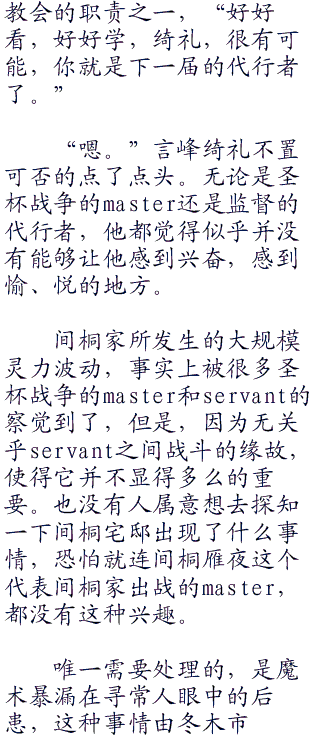 教会的职责之一，“好好
看，好好学，绮礼，很有可
能，你就是下一届的代行者
了。”
“嗯。”言峰绮礼不置
可否的点了点头。无论是圣
杯战争的master还是监督的
代行者，他都觉得似乎并没
有能够让他感到兴奋，感到
愉、悦的地方。
间桐家所发生的大规模
灵力波动，事实上被很多圣
杯战争的master和servant的
察觉到了，但是，因为无关
乎servant之间战斗的缘故，
使得它并不显得多么的重
要。也没有人属意想去探知
一下间桐宅邸出现了什么事
情，恐怕就连间桐雁夜这个
代表间桐家出战的master，
都没有这种兴趣。
唯一需要处理的，是魔
术暴漏在寻常人眼中的后
患，这种事情由冬木市